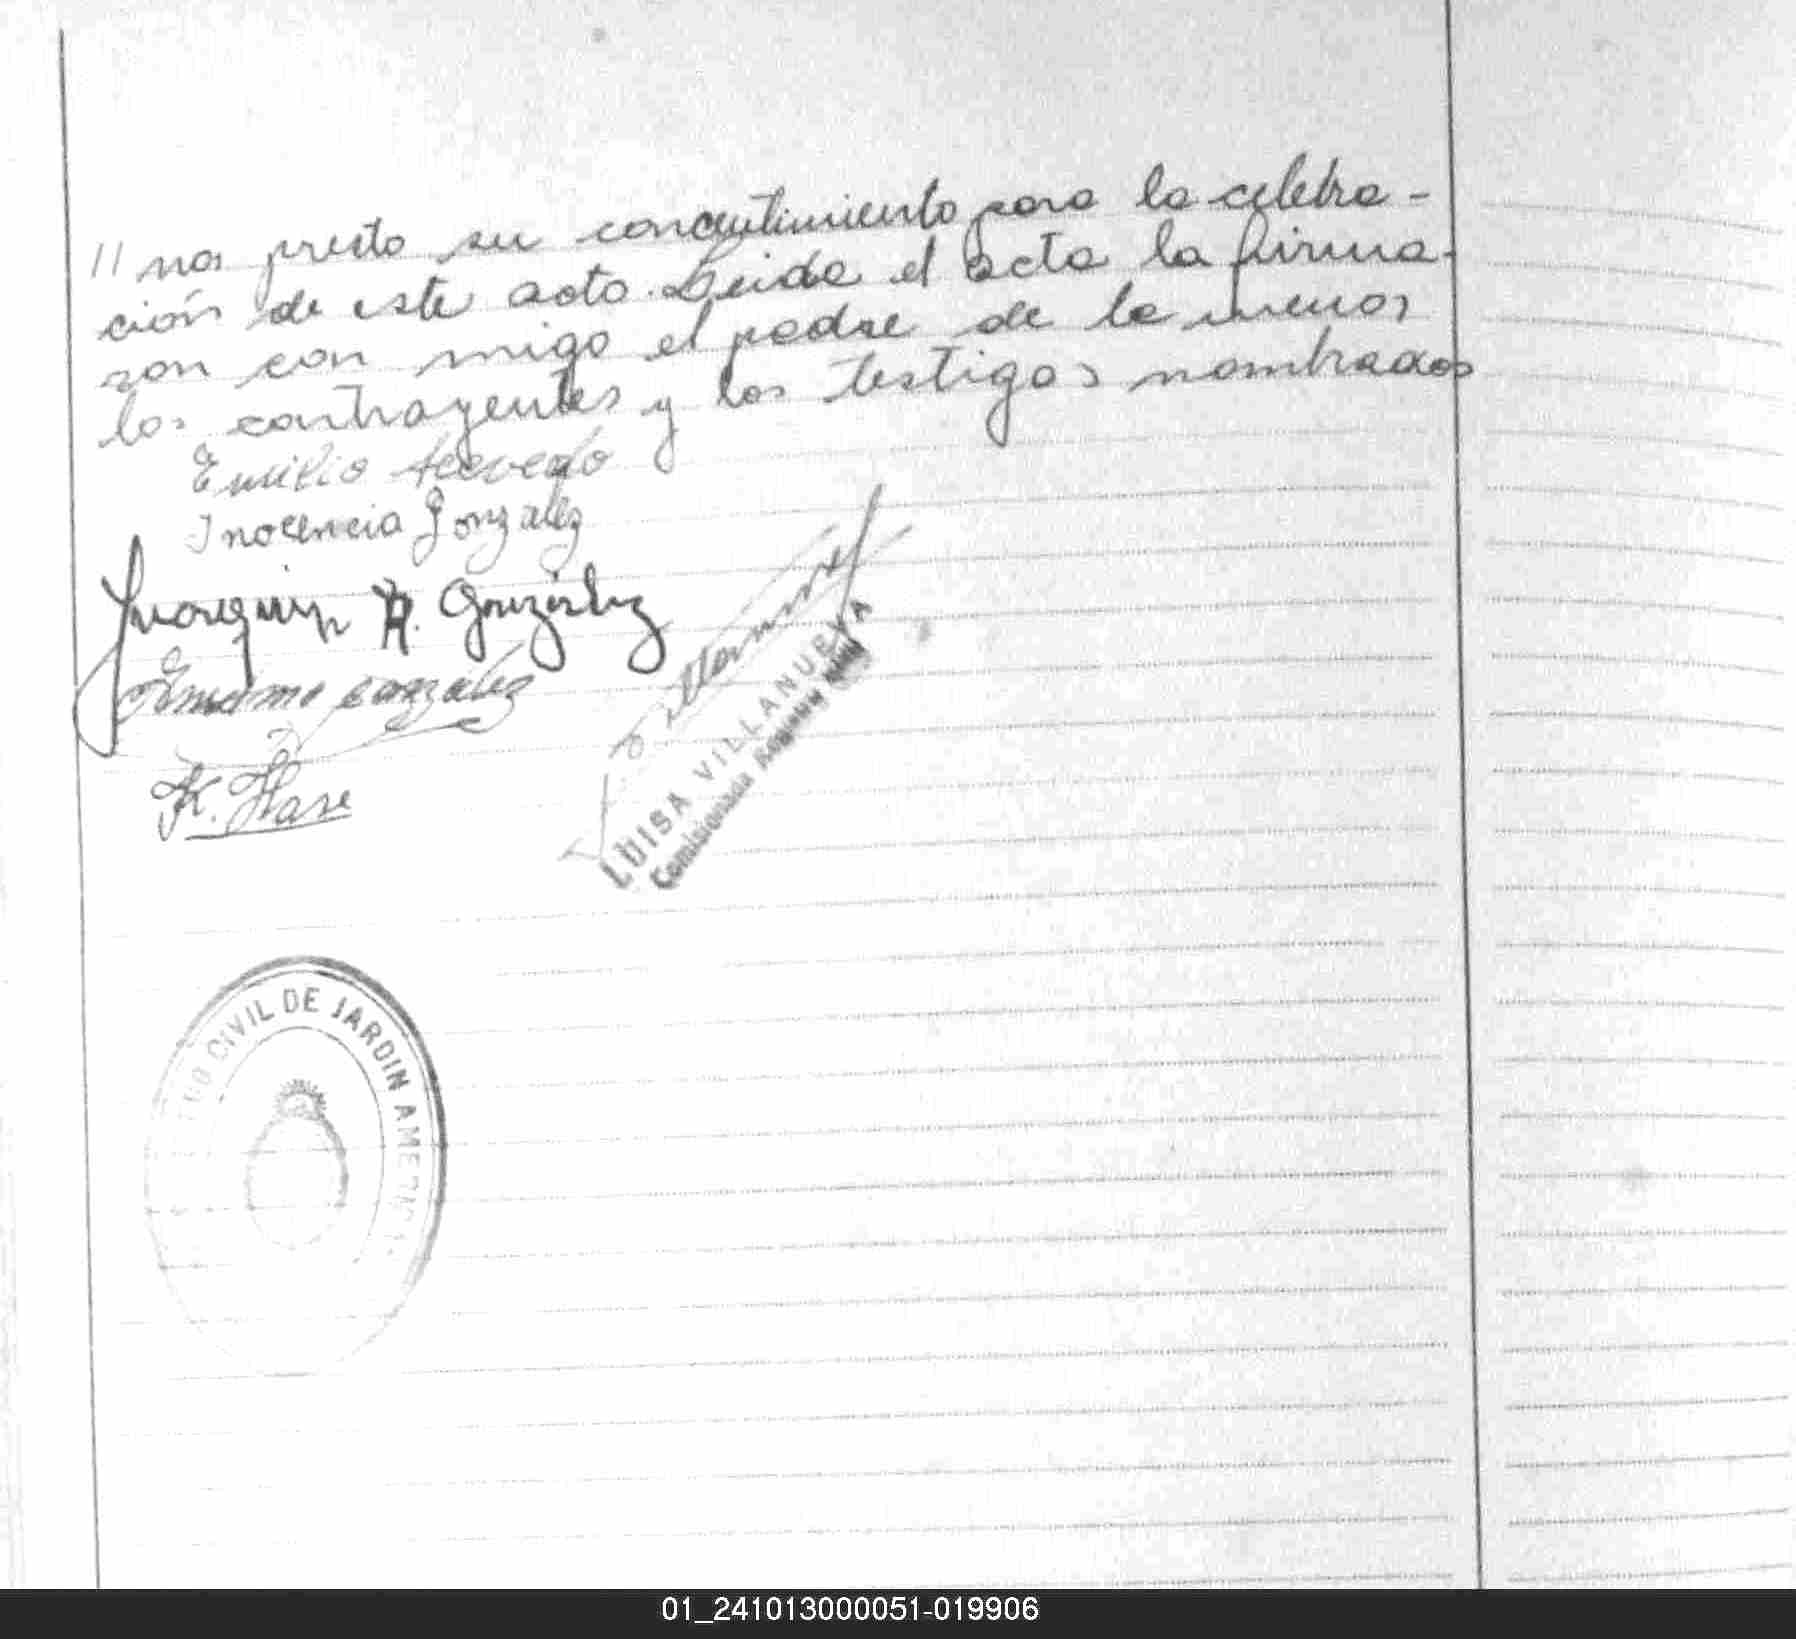 // nos presto su concentimiento para la celebra-
ción de este acto. Leida el acta la firma-
ron con migo el padre de la menor
los contrayentes y los testigos nombrados
Emilio Acevedo
Inocencia González
Juaquin A. González
González
K. Hase
LUISA VILLANUEVA
Comisionada
CIVIL DE JARDIN AMERICA
01_241013000051-019906